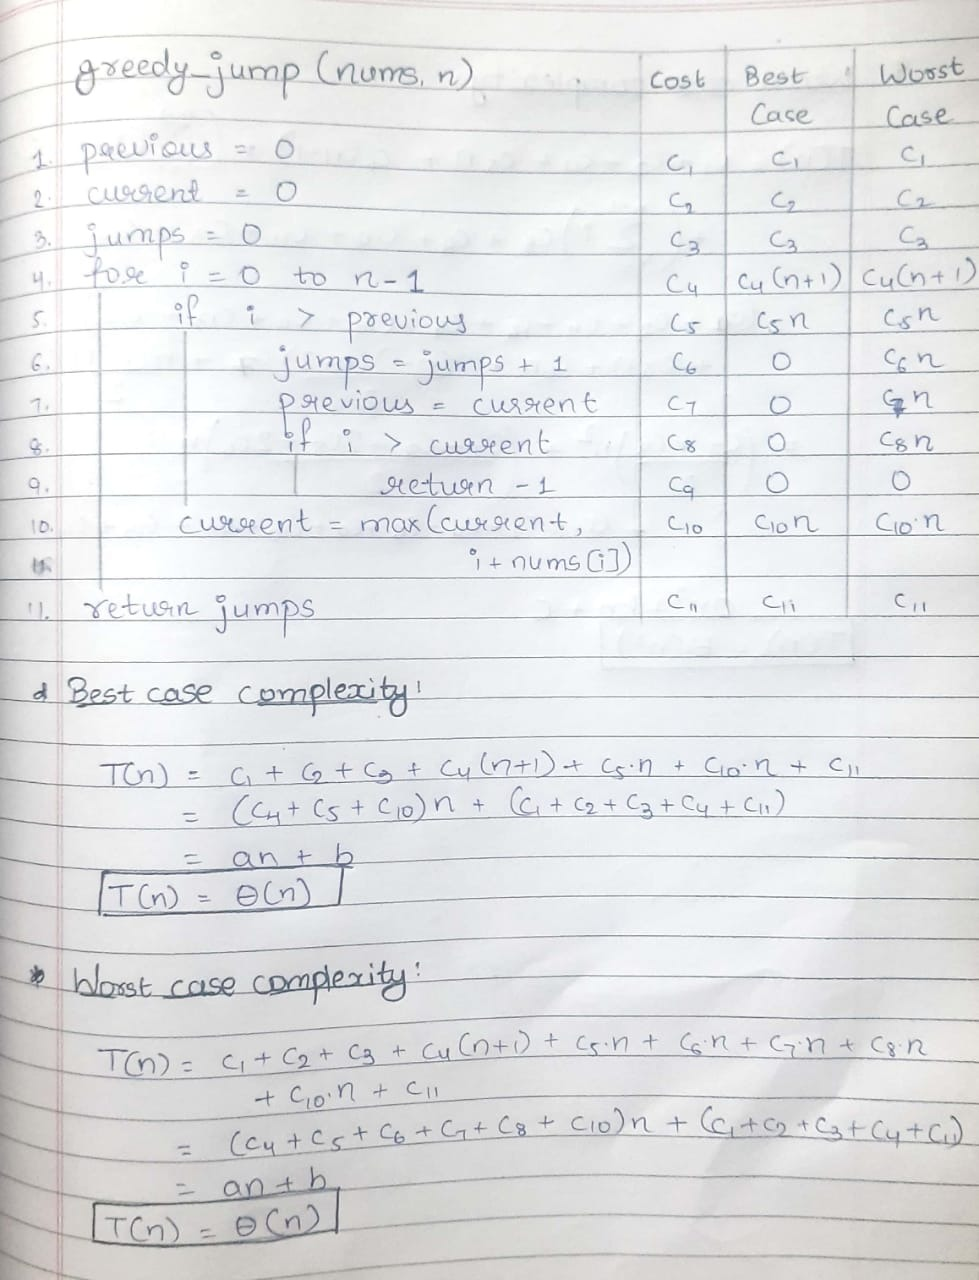 greedy_jump (nums, n) Cost Best Case Worst Case
1. previous = 0 C₁ C₁ C₁
2. current = 0 C₂ C₂ C₂
3. jumps = 0 C₃ C₃ C₃
4. for i = 0 to n-1 C₄ C₄(n+1) C₄(n+1)
5. if i > previous C₅ C₅n C₅n
6. jumps = jumps + 1 C₆ 0 C₆n
7. previous = current C₇ 0 C₇n
8. if i > current C₈ 0 C₈n
9. return -1 C₉ 0 0
10. current = max(current, C₁₀ C₁₀n C₁₀·n
i + nums[i])
11. return jumps C₁₁ C₁₁ C₁₁
Best case complexity:
T(n) = C₁ + C₂ + C₃ + C₄(n+1) + C₅·n + C₁₀·n + C₁₁
= (C₄ + C₅ + C₁₀)n + (C₁ + C₂ + C₃ + C₄ + C₁₁)
= an + b
T(n) = Θ(n)
* Worst case complexity:
T(n) = C₁ + C₂ + C₃ + C₄(n+1) + C₅·n + C₆·n + C₇·n + C₈·n
+ C₁₀·n + C₁₁
= (C₄ + C₅ + C₆ + C₇ + C₈ + C₁₀)n + (C₁ + C₂ + C₃ + C₄ + C₁₁)
= an + b
T(n) = Θ(n)